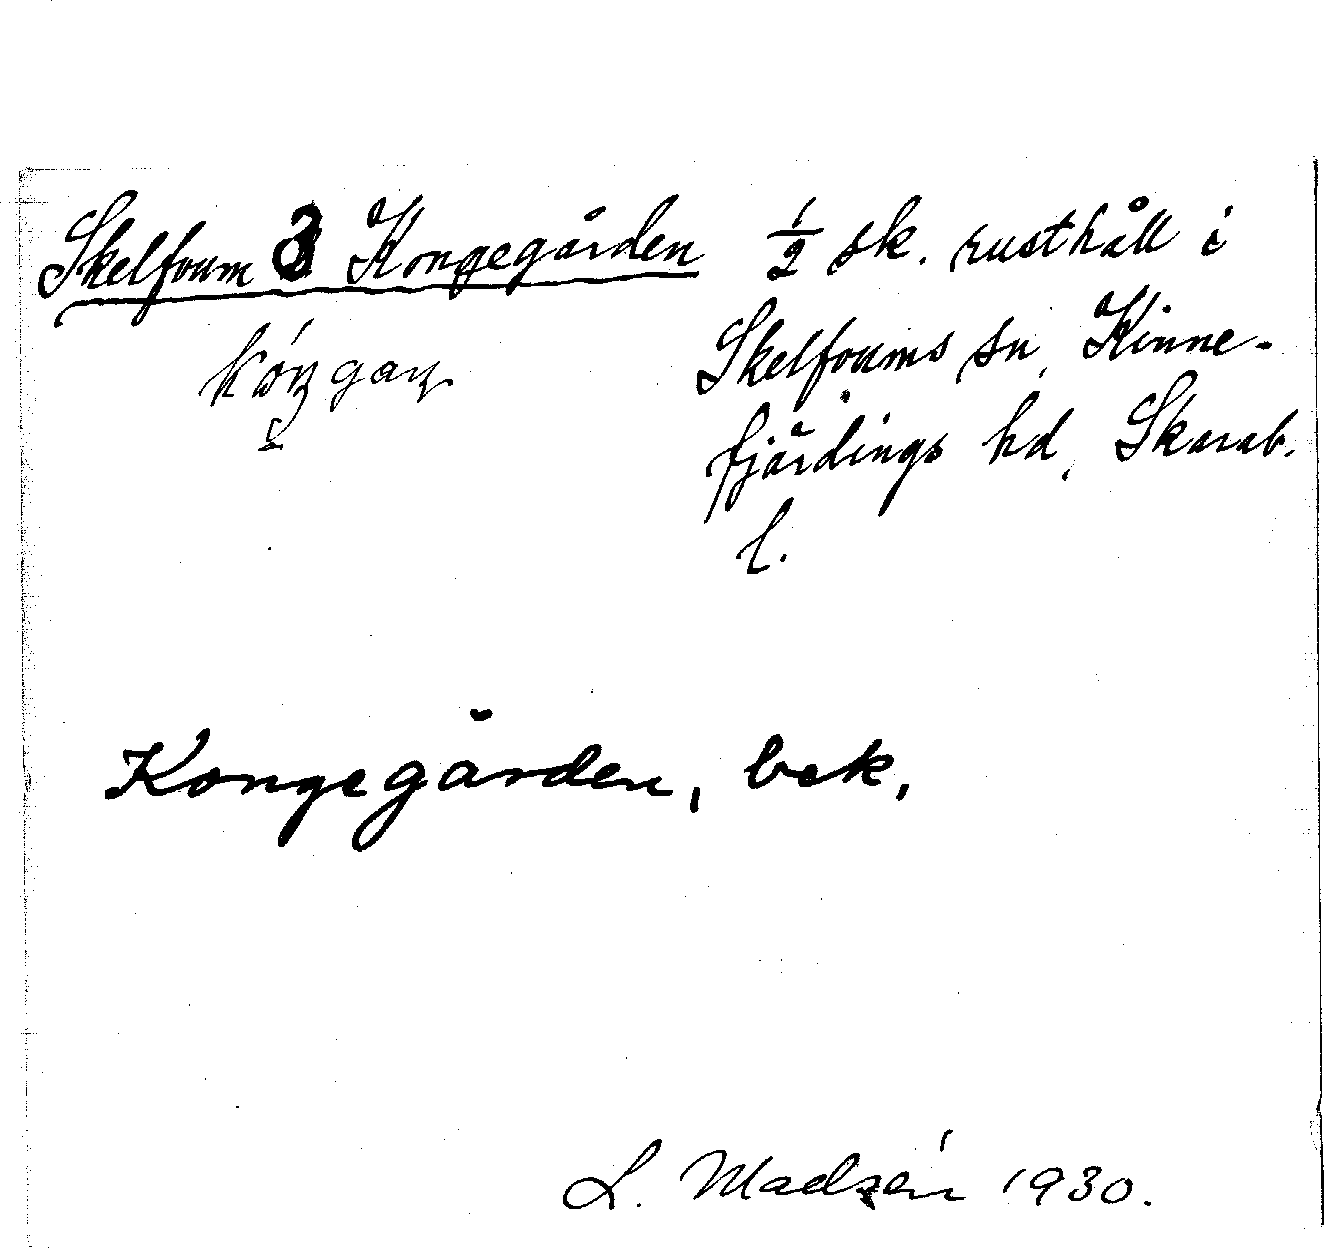 Skelfoum 3 Kongegården ½ sk. rusthåll i
Skelfoums sn, Kinne-
fjärdings hd, Skarab.
l.
Kongegården, bek,
L. Madsén 1930.